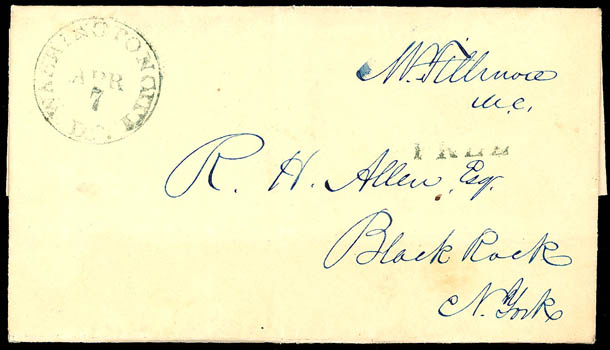 WASHINGTON CITY D.C.
APR
7
M. Fillmore
M.C.
FREE
R. H. Allen, Esq.
Black Rock
N. York